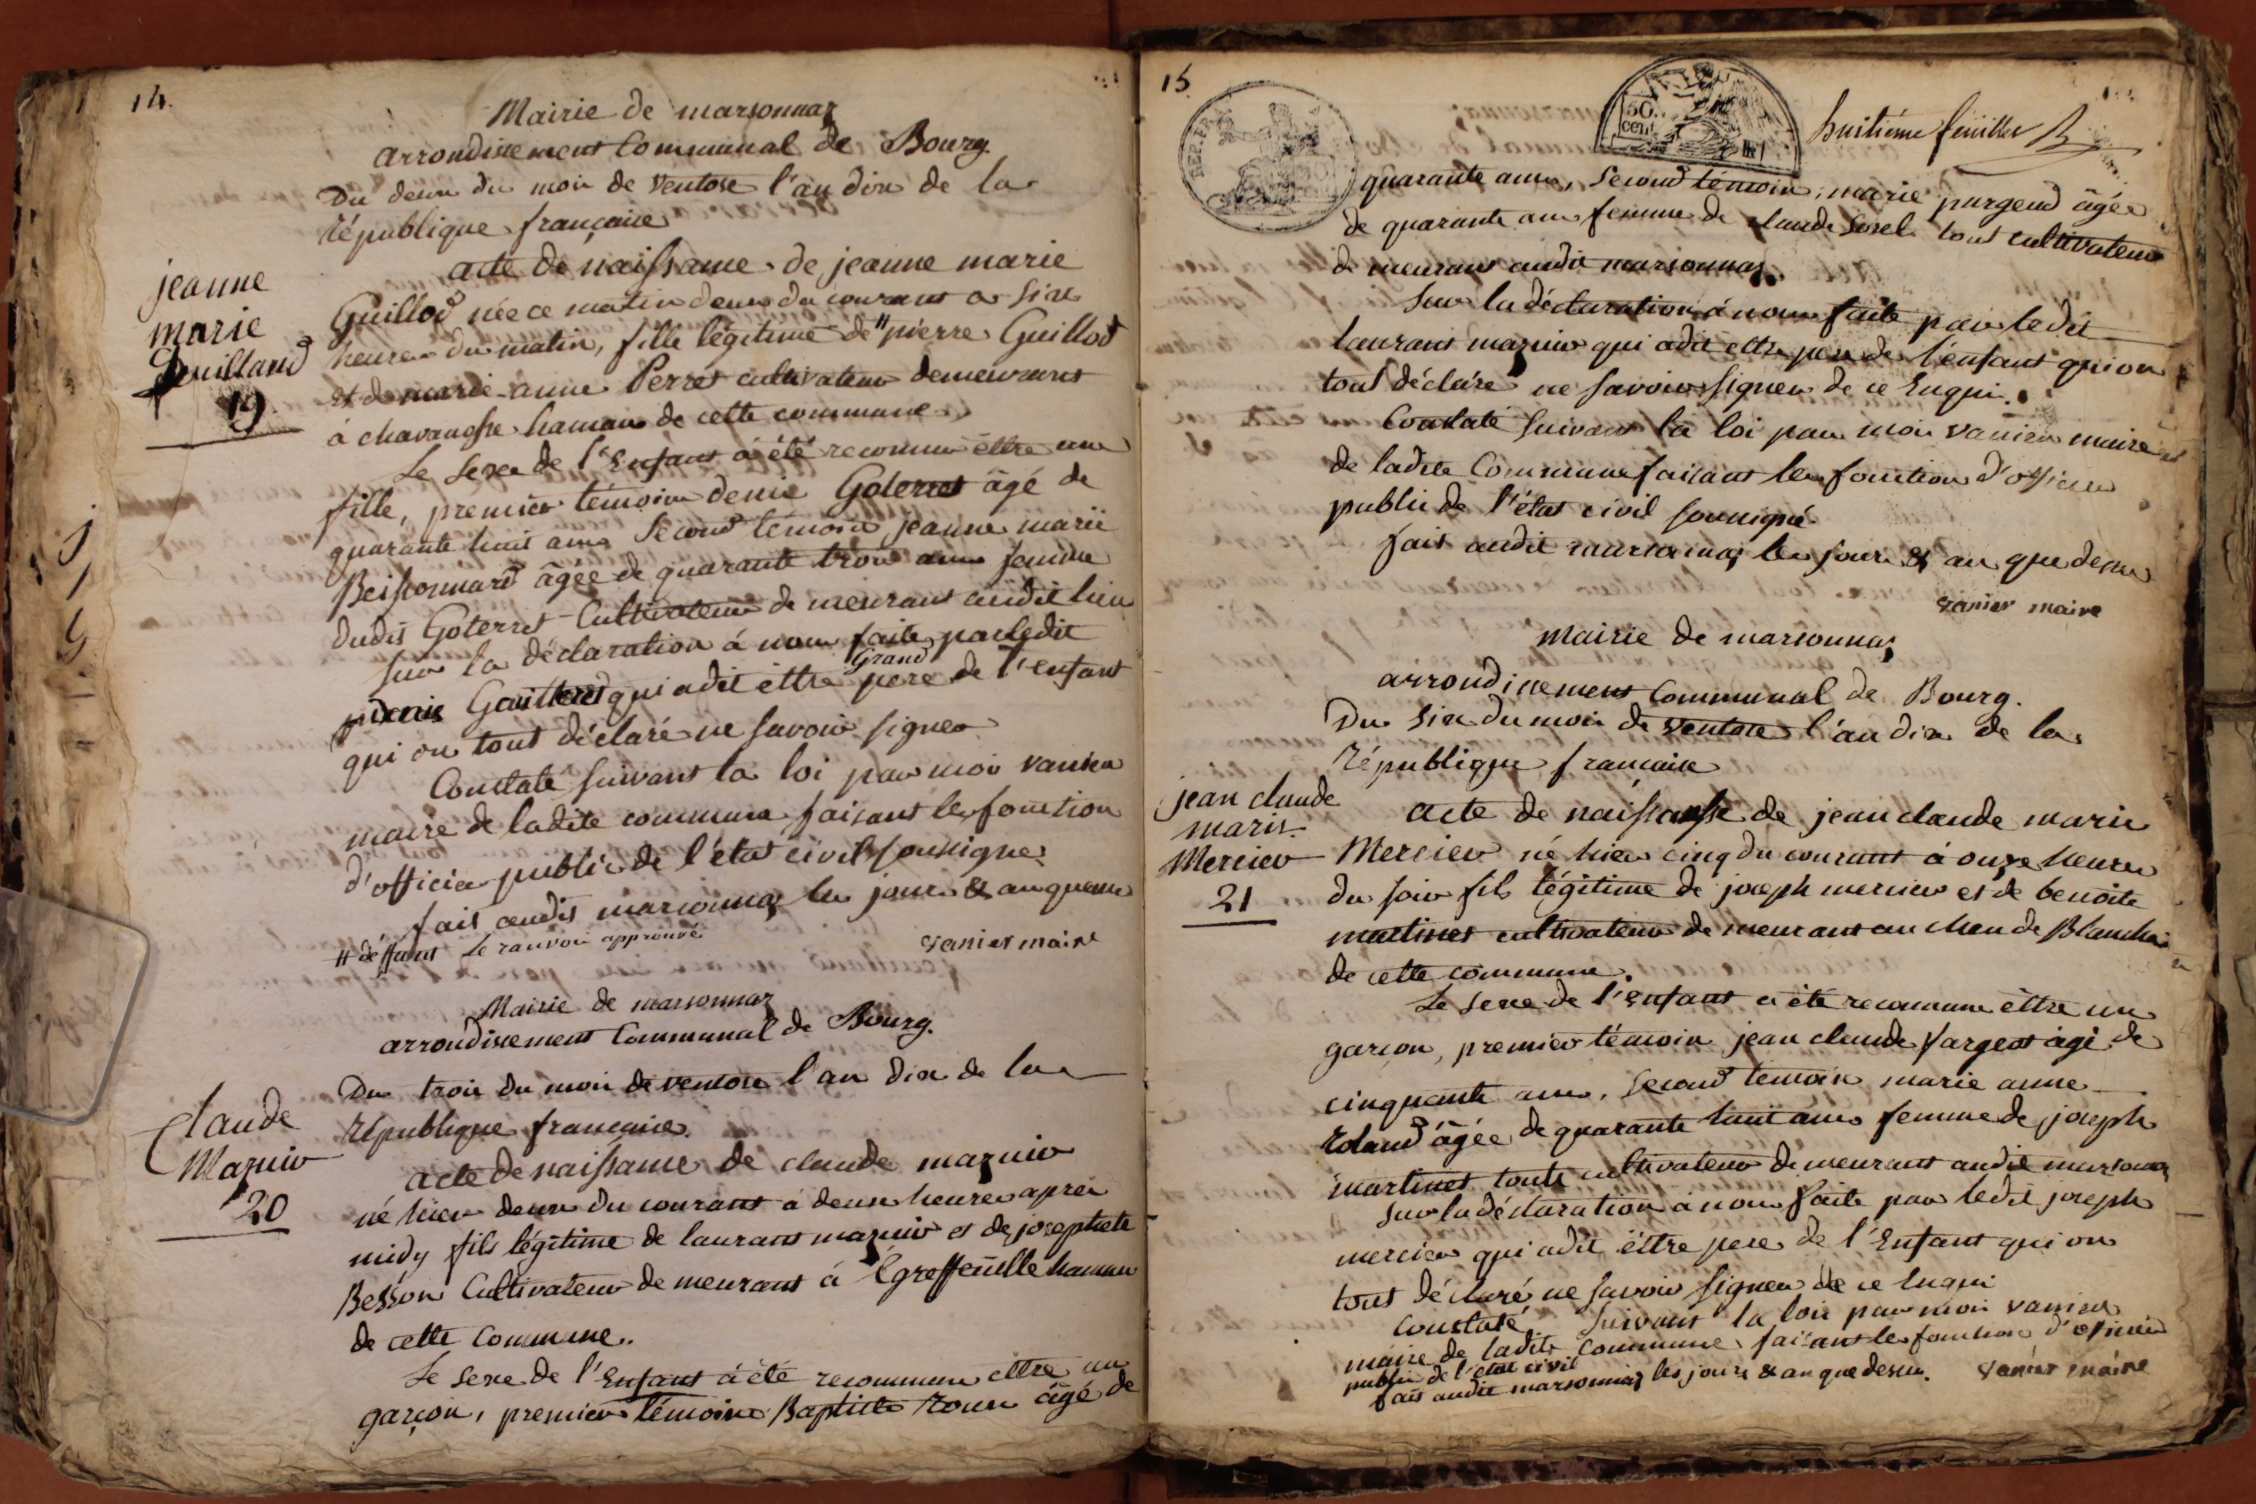 14.
Mairie de marsonnaz
arrondissement Communal de Bourg.
Du deux du mois de Ventose l'an dix de la
république française
jeanne
marie
Guilland
19
acte de naissance de jeanne marie
Guillod née ce matin deux du courant a six
heures du matin, fille légitime de # pierre Guillod
et de marie anne Perret cultivateurs demeurant
à chavanosse hamau de cette commune.
Le sexe de l'Enfant à été reconnu êttre une
fille, premier témoin denis Goterret âgé de
quarante huit ans second témoin jeanne marie
Beissonnard âgée de quarante trois ans femme
dudit Goterret Cultivateurs demeurant audit lieu
sur la déclaration á nous faite par ledit
denis qui adit êttre Grand pere de l'enfant
qui on tout déclaré ne savoir signer
Constaté suivant la loi par moi vanier
maire de ladite commune faisant les fonction
d'officier public de l'état civil soussigné
fait audit marsonnaz les jours & an que dessus
# déffunt Le ranvoi approuvé
vanier maire
Mairie de marsonnaz
arrondissement Communal de Bourg.
Du trois du mois de ventose l'an dix de la
république française
Claude
Maznio
20
acte de naissance de claude maznio
né hier deux du courant à deux heures aprés
midy fils légitime de laurant maznio et de josephete
Besson Cultivateurs demeurant á Egreffeuille hamau
de cette Commune.
Le sexe de l'Enfant á été reconnu êttre un
garçon, premier témoin Baptiste Roux âgé de
15
50
cent
huitiéme feuillet
quarante ans, second témoin, marie purgeud âgée
de quarante ans femme de claude sorel tout cultivateurs
demeurant audit marsonnaz.
Sur la déclaration á nous faite par ledit
laurant maznio qui adit êttre pere de l'enfant qui on
tout déclaré ne savoir signer de ce Enqui.
Constaté suivant la loi par moi vanier maire
de ladite Commune faisant les fonction d'officier
public de l'état civil soussigné
fait audit marsonnaz les jours & an que dessus
vanier maire
Mairie de marsonnaz
arrondissement Communal de Bourg.
Du six du mois de ventose l'an dix de la
République française
jean claude
marie
Mercier
21
acte de naissansse de jean claude marie
Mercier né hier cinq du courant à onze heures
du soir fils légitime de joseph mercier et de benoite
martinet cultivateurs demeurant au lieu de
de cette commune.
Le sexe de l'Enfant à été reconnu êttre un
garçon, premier témoin jean claude Vargeot agé de
cinquante ans, second temoin marie anne
Roland âgée de quarante huit ans femme de joseph
martinet touts cultivateurs demeurant audit marsonnaz
sur la déclaration á nous faite par ledit joseph
mercier qui adit êttre pere de l'Enfant qui on
tout déclaré ne savoir signer de ce Enqui
Constaté suivant la loi par moi vanier
maire de ladite Commune faisant les fonction d'officier
public de l'état civil
fait audit marsonnaz les jours & an que dessus. vanier maire